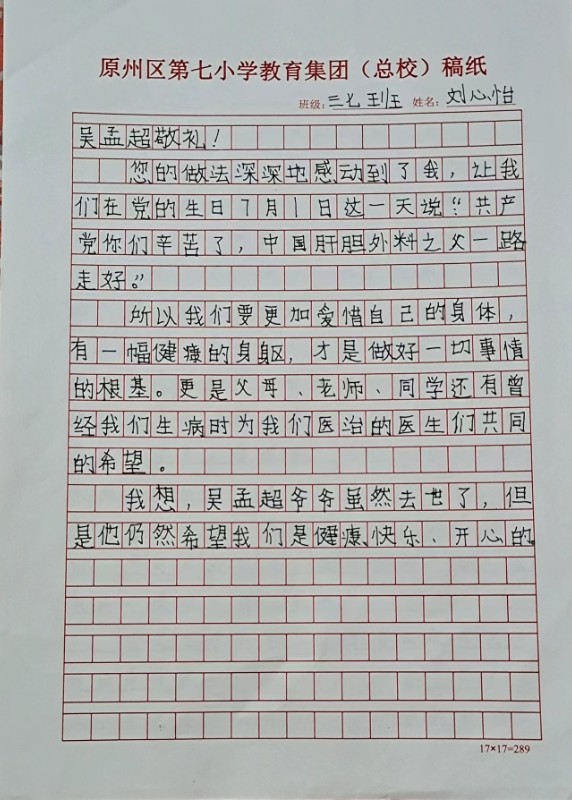 原州区第七小学教育集团（总校）稿纸
班级：三七班 姓名：刘心怡
吴孟超敬礼！
您的做法深深地感动到了我，让我
们在党的生日7月1日这一天说“共产
党你们辛苦了，中国肝胆外料之父一路
走好。”
所以我们要更加爱惜自己的身体，
有一幅健康的身躯，才是做好一切事情
的根基。更是父母、老师、同学还有曾
经我们生病时为我们医治的医生们共同
的希望。
我想，吴孟超爷爷虽然去世了，但
是他仍然希望我们是健康、快乐、开心的。
17×17=289